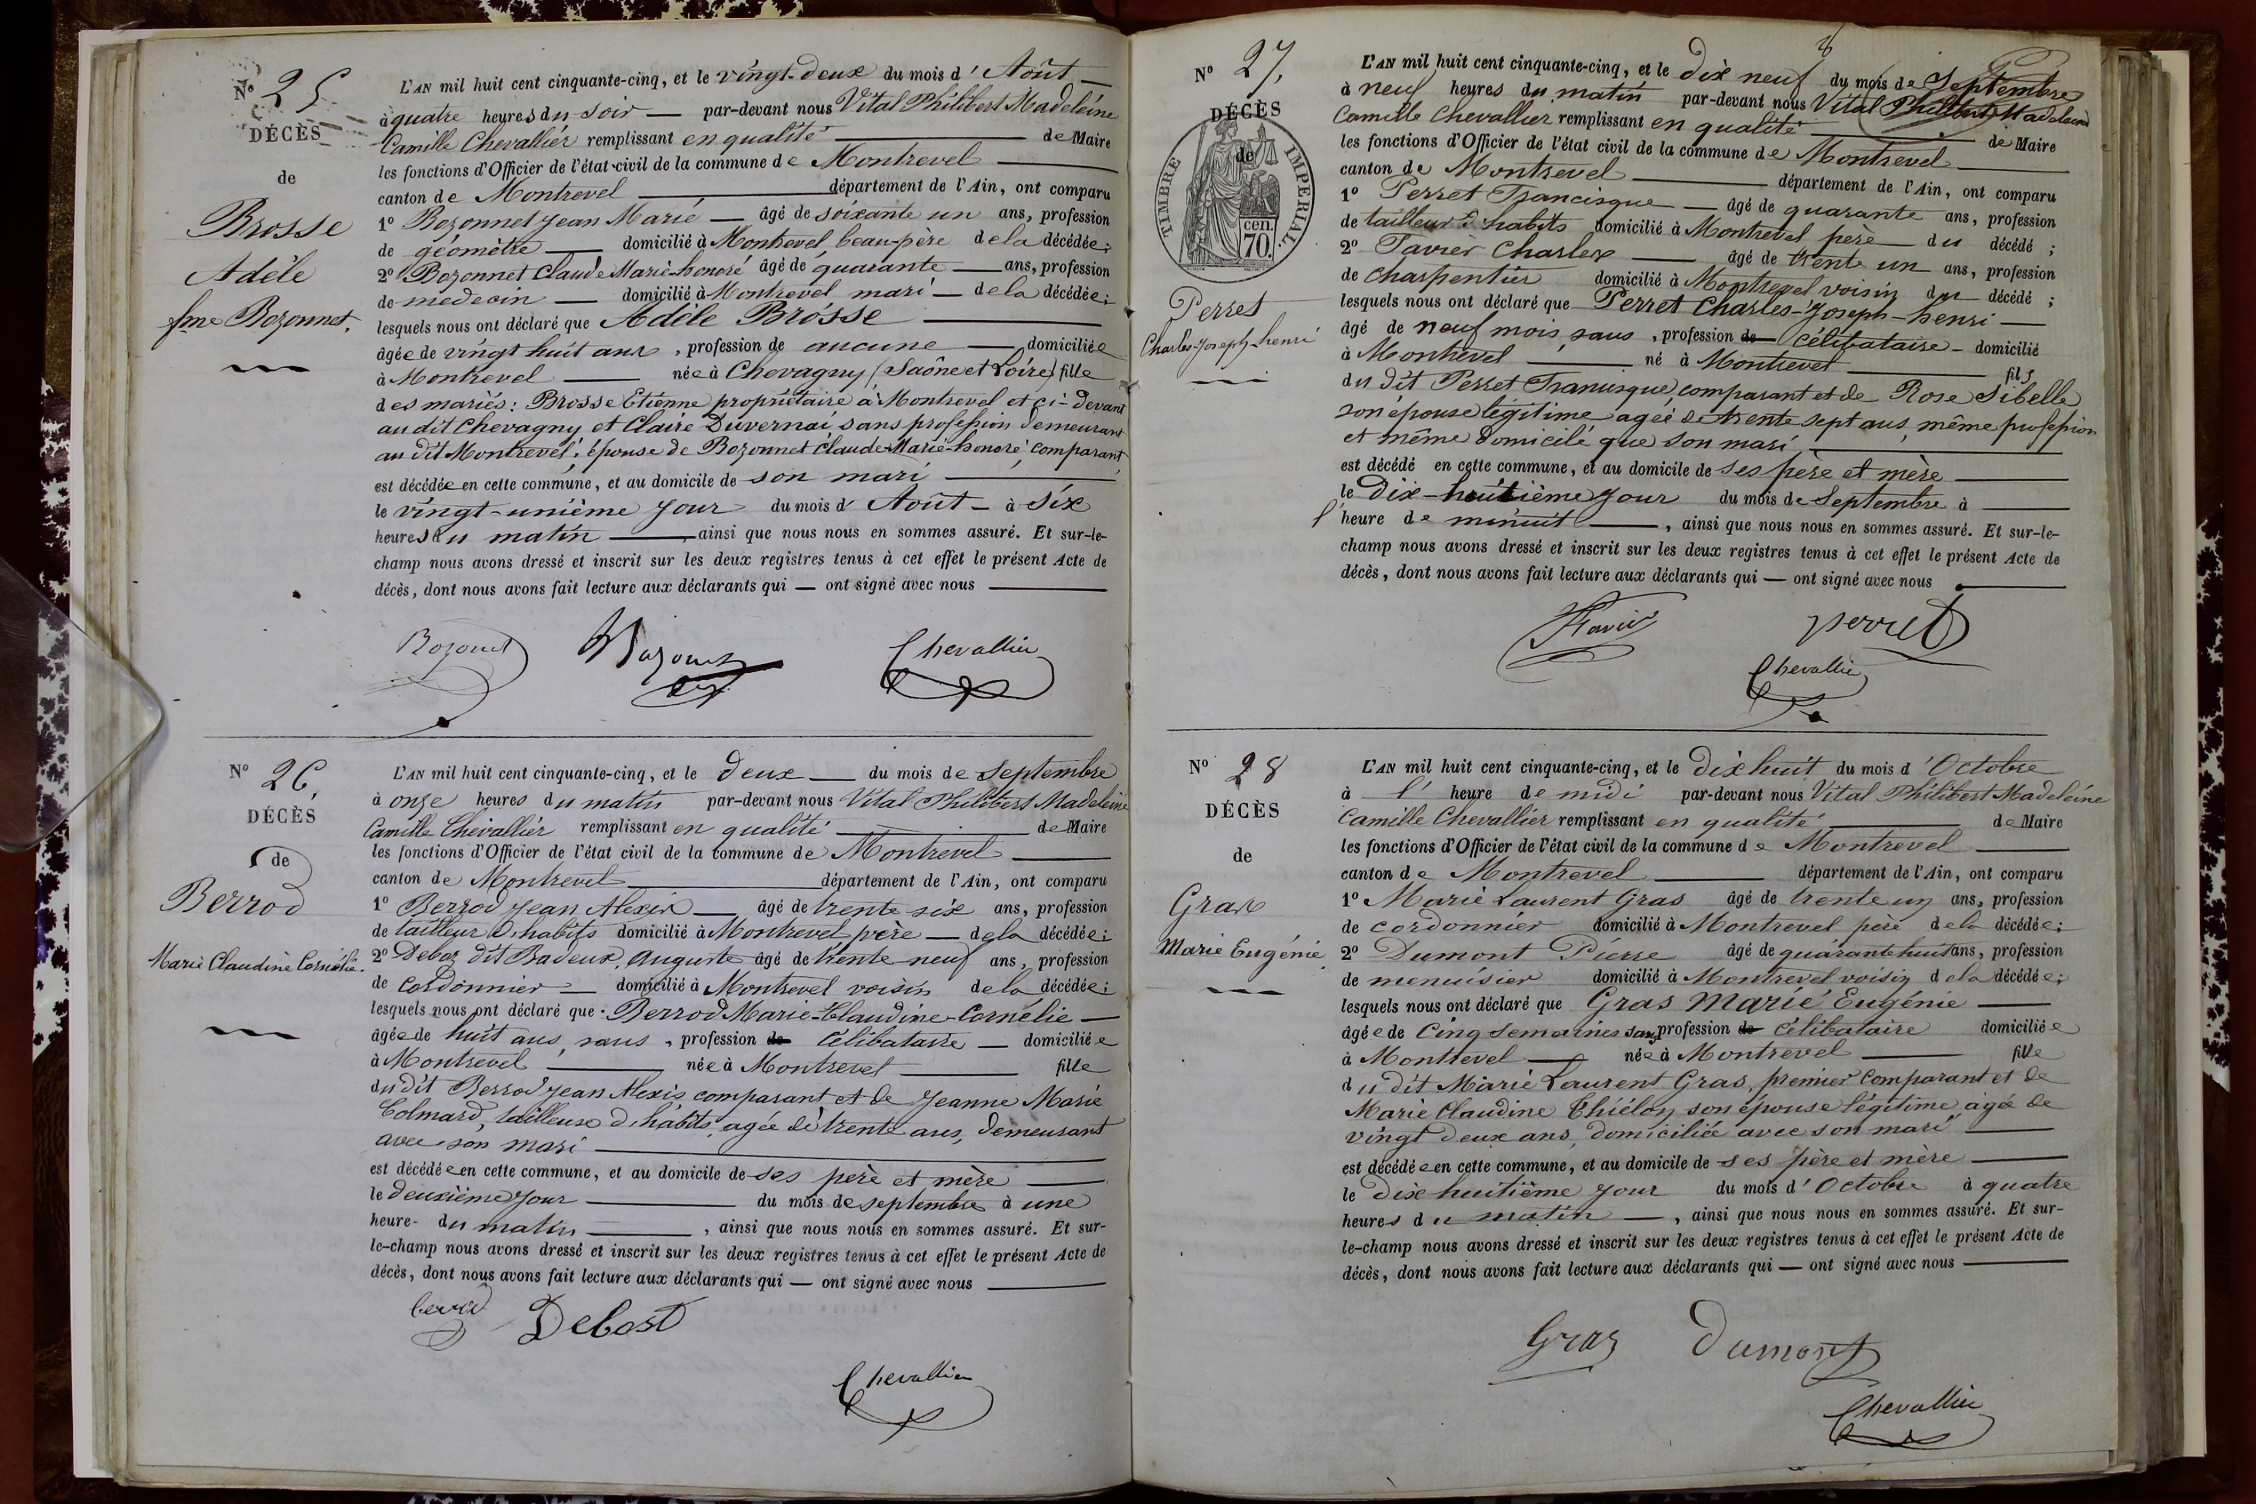 N° 25
DÉCÈS
de
Brosse
Adèle
fme Bozonnet.
L'AN mil huit cent cinquante-cinq, et le vingt-deux du mois d'Août
à quatre heures du soir par-devant nous Vital Philibert Madeleine
Camille Chevallier remplissant en qualité de Maire
les fonctions d'Officier de l'état civil de la commune de Montrevel
canton de Montrevel département de l'Ain, ont comparu
1° Bozonnet Jean Marie âgé de soixante un ans, profession
de géomètre domicilié à Montrevel beau-père de la décédée;
2° Bozonnet Claude Marie-honoré âgé de quarante ans, profession
de médecin domicilié à Montrevel mari de la décédée;
lesquels nous ont déclaré que Adèle Brosse
âgée de vingt huit ans, profession de aucune domiciliée
à Montrevel née à Chevagny (Saône et Loire) fille
des mariés: Brosse Etienne propriétaire à Montrevel et ci-devant
au dit Chevagny et Claire Duvernai sans profession demeurant
au dit Montrevel; épouse de Bozonnet Claude-Marie-honoré comparant
est décédée en cette commune, et au domicile de son mari
le vingt-unième jour du mois d'Août à six
heures du matin, ainsi que nous nous en sommes assuré. Et sur-le-
champ nous avons dressé et inscrit sur les deux registres tenus à cet effet le présent Acte de
décès, dont nous avons fait lecture aux déclarants qui — ont signé avec nous
Bozonet Bozonet Chevallier
N° 26,
DÉCÈS
de
Berrod
Marie Claudine Cornélie.
L'AN mil huit cent cinquante-cinq, et le deux du mois de Septembre
à onze heures du matin par-devant nous Vital Philibert Madeleine
Camille Chevallier remplissant en qualité de Maire
les fonctions d'Officier de l'état civil de la commune de Montrevel
canton de Montrevel département de l'Ain, ont comparu
1° Berrod Jean Alexis âgé de trente six ans, profession
de tailleur d'habits domicilié à Montrevel père de la décédée;
2° Deboz dit Badeux, Auguste âgé de trente neuf ans, profession
de cordonnier domicilié à Montrevel voisin de la décédée;
lesquels nous ont déclaré que Berrod Marie-Claudine-Cornélie
âgée de huit ans, sans, profession de célibataire domiciliée
à Montrevel née à Montrevel fille
du dit Berrod Jean Alexis comparant et de Jeanne Marie
Colmard, tailleuse d'habits, agée de trente ans, demeurant
avec son mari
est décédée en cette commune, et au domicile de ses père et mère
le deuxième jour du mois de septembre à une
heure du matin, ainsi que nous nous en sommes assuré. Et sur-
le-champ nous avons dressé et inscrit sur les deux registres tenus à cet effet le présent Acte de
décès, dont nous avons fait lecture aux déclarants qui — ont signé avec nous
berrod Debost
Chevallier
8
N° 27,
DÉCÈS
de
TIMBRE IMPERIAL.
70. cen.
Perret
Charles-Joseph-henri
L'AN mil huit cent cinquante-cinq, et le dix neuf du mois de Septembre
à neuf heures du matin par-devant nous Vital Philibert Madeleine
Camille Chevallier remplissant en qualité de Maire
les fonctions d'Officier de l'état civil de la commune de Montrevel
canton de Montrevel département de l'Ain, ont comparu
1° Perret Francisque âgé de quarante ans, profession
de tailleur d'habits domicilié à Montrevel père du décédé;
2° Favier Charles âgé de trente un ans, profession
de charpentier domicilié à Montrevel voisin du décédé;
lesquels nous ont déclaré que Perret Charles-Joseph-henri
âgé de neuf mois, sans, profession de célibataire domicilié
à Montrevel né à Montrevel fils
du dit Perret Francisque, comparant et de Rose Sibelle
son épouse légitime agée de trente sept ans, même profession
et même domicile que son mari
est décédé en cette commune, et au domicile de ses père et mère
le Dix-huitième jour du mois de Septembre à
l'heure de minuit, ainsi que nous nous en sommes assuré. Et sur-le-
champ nous avons dressé et inscrit sur les deux registres tenus à cet effet le présent Acte de
décès, dont nous avons fait lecture aux déclarants qui — ont signé avec nous
Favier perret
Chevallier
N° 28
DÉCÈS
de
Gras
Marie Eugénie
L'AN mil huit cent cinquante-cinq, et le dix huit du mois d'Octobre
à l'heure de midi par-devant nous Vital Philibert Madeleine
Camille Chevallier remplissant en qualité de Maire
les fonctions d'Officier de l'état civil de la commune de Montrevel
canton de Montrevel département de l'Ain, ont comparu
1° Marie Laurent Gras âgé de trente un ans, profession
de cordonnier domicilié à Montrevel père de la décédée;
2° Dumont Pierre âgé de quarante huit ans, profession
de menuisier domicilié à Montrevel voisin de la décédée;
lesquels nous ont déclaré que Gras Marie Eugénie
âgée de cinq semaines sans profession de célibataire domiciliée
à Montrevel née à Montrevel fille
du dit Marie Laurent Gras, premier comparant et de
Marie Claudine Chiéloy son épouse légitime, agée de
vingt deux ans, domiciliée avec son mari
est décédée en cette commune, et au domicile de ses père et mère
le dix huitième jour du mois d'Octobre à quatre
heures du matin, ainsi que nous nous en sommes assuré. Et sur-
le-champ nous avons dressé et inscrit sur les deux registres tenus à cet effet le présent Acte de
décès, dont nous avons fait lecture aux déclarants qui — ont signé avec nous
Gras Dumont
Chevallier